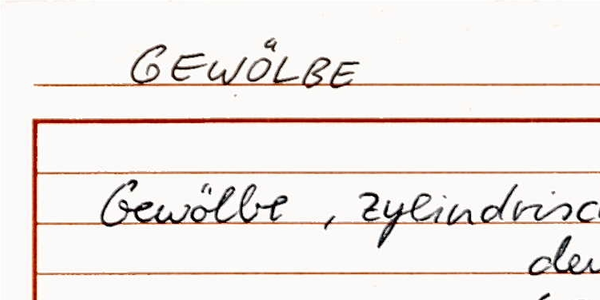 GEWÖLBE
Gewölbe , zylindrisc